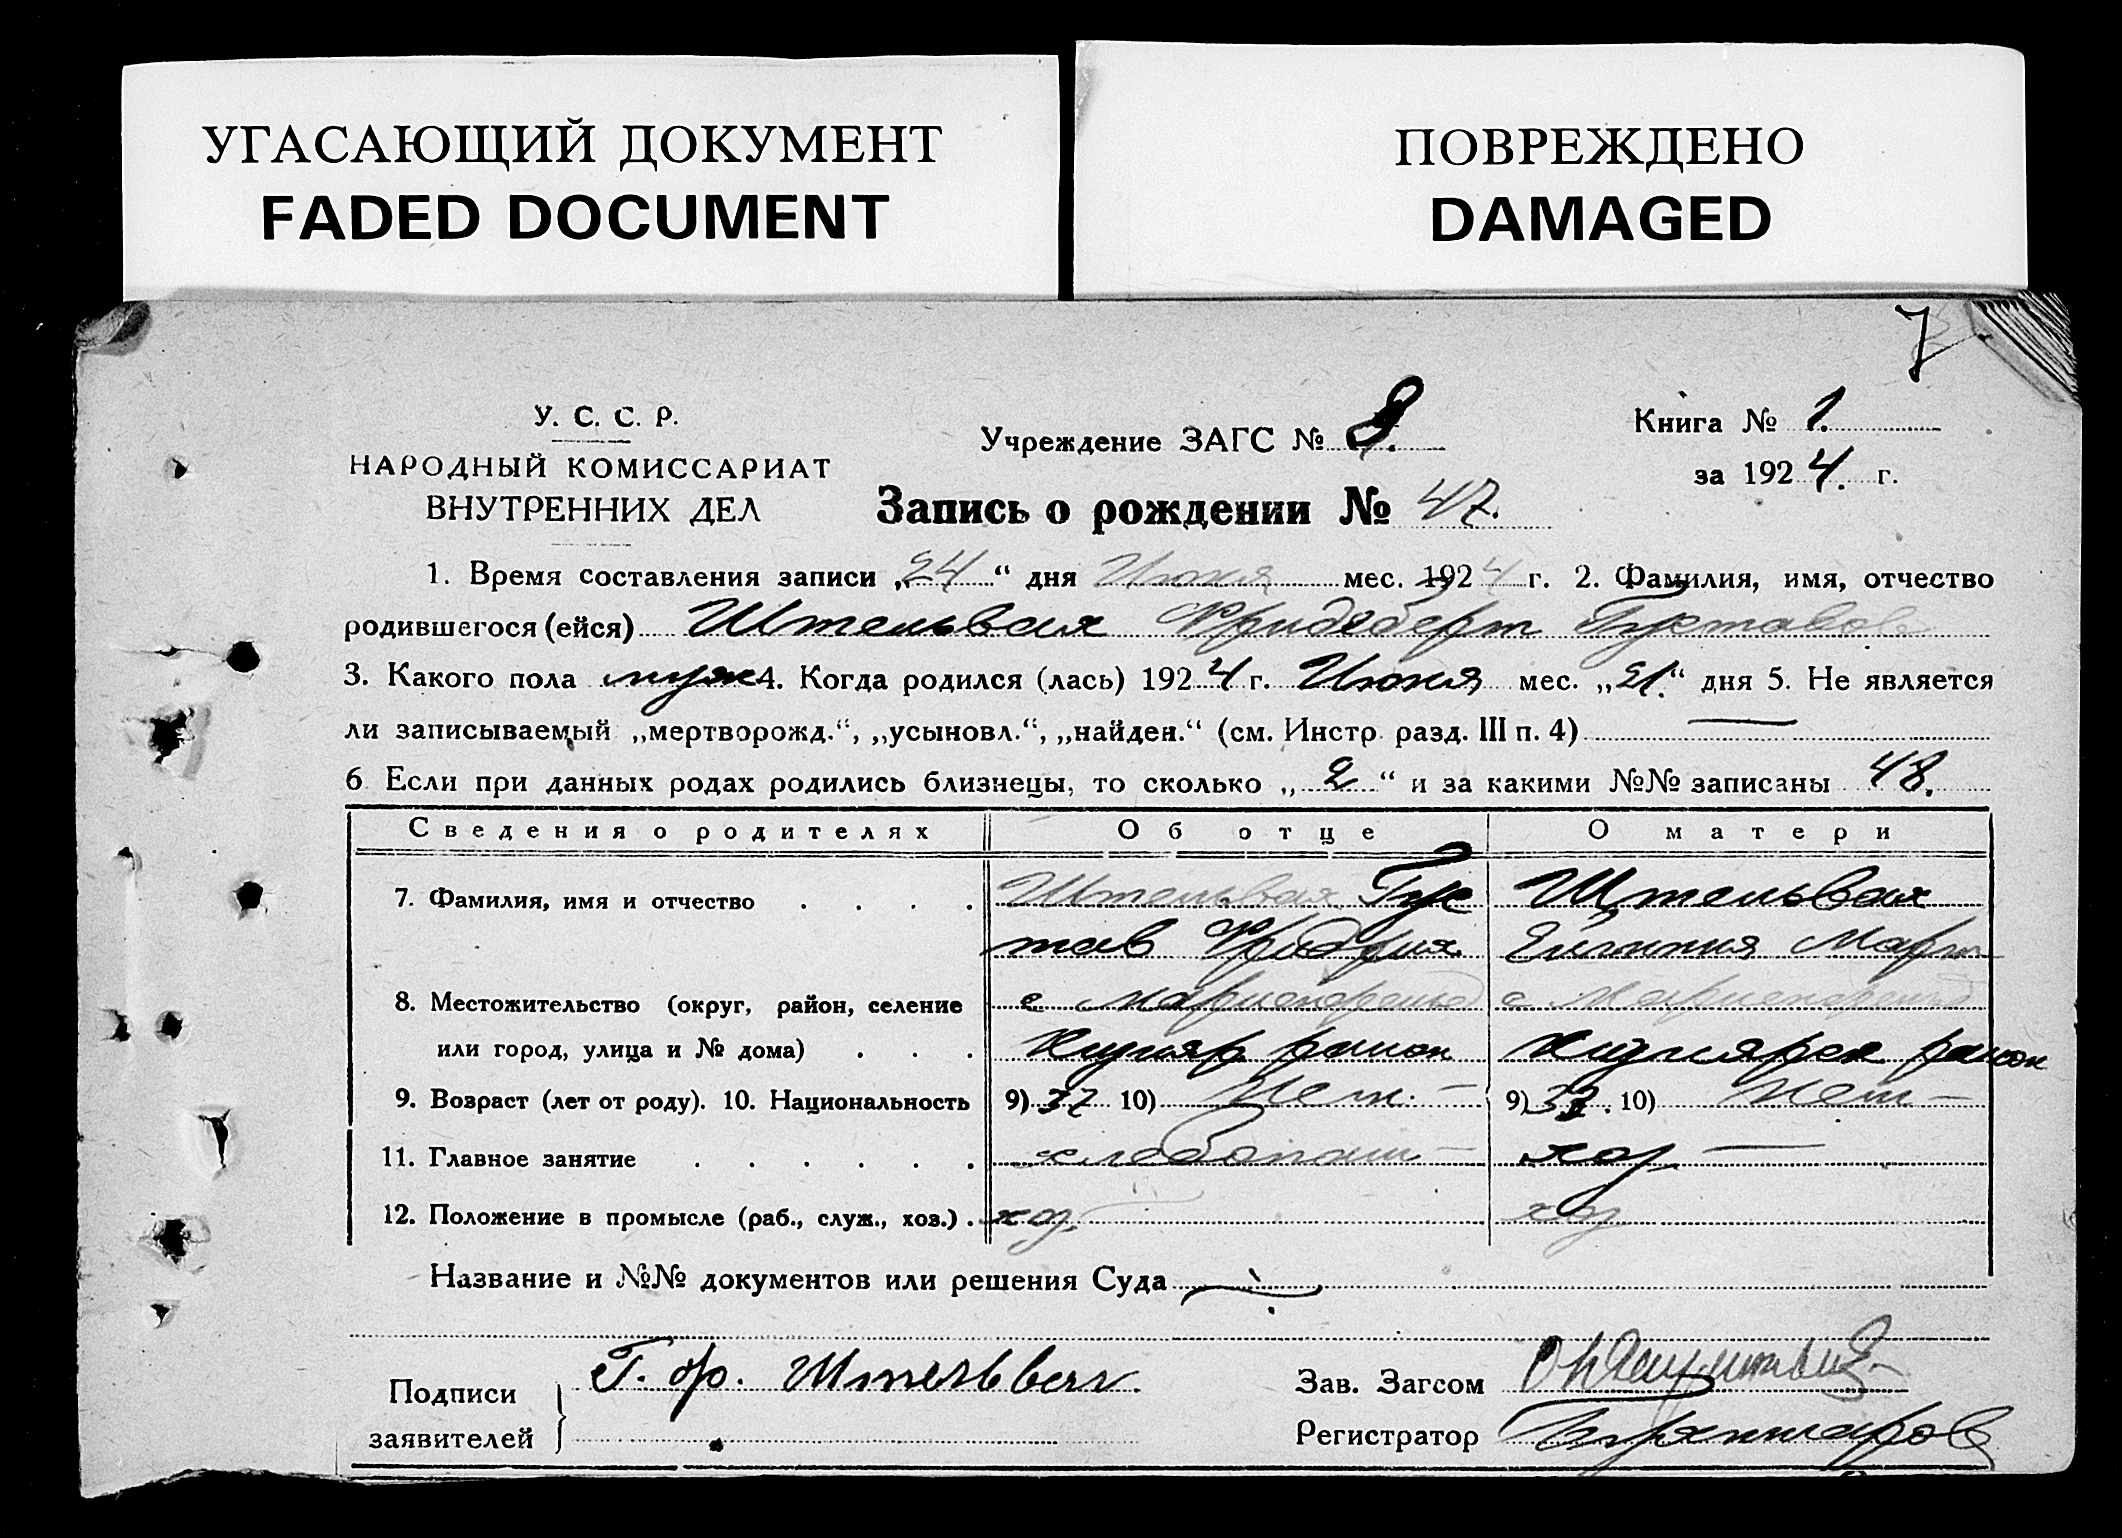 УГАСАЮЩИЙ ДОКУМЕНТ
FADED DOCUMENT
ПОВРЕЖДЕНО
DAMAGED
7
У. С. С. Р.
НАРОДНЫЙ КОМИССАРИАТ
ВНУТРЕННИХ ДЕЛ
Учреждение ЗАГС № 8.
Книга № 1.
за 1924. г.
Запись о рождении № 47.
1. Время составления записи „24“ дня Июня мес. 1924 г. 2. Фамилия, имя, отчество
родившегося (ейся) Штельвах Фридеберт Густавов
3. Какого пола муж 4. Когда родился (лась) 1924 г. Июня мес. „21.“ дня 5. Не является
ли записываемый „мертворожд.“, „усыновл.“, „найден.“ (см. Инстр. разд. III п. 4) —
6 Если при данных родах родились близнецы, то сколько „2“ и за какими №№ записаны 48.
Сведения о родителях Об отце О матери
7. Фамилия, имя и отчество . . . . Штельвах Гус Штельвах
тав Фридрих Март
8. Местожительство (округ, район, селение с Мариенфельд с Мариенфельд
или город, улица и № дома) . . . район район
9. Возраст (лет от роду). 10. Национальность 9) 37 10) Нем. — 9) 10) Нем —
11. Главное занятие . . . . . . хлебопаш — хоз —
12. Положение в промысле (раб., служ., хоз.) . хоз. хоз
Название и №№ документов или решения Суда
Подписи заявителей Г. Фр. Штельвах
Зав. Загсом
Регистратор